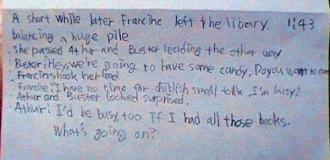 A short while later Francine left the library. 1:43
balancing a huge pile
She passed Arthur and Buster heading the other way
Buster: Hey, we're going to have some candy. Do you want to come
Francine shook her head
Francine: I have no time for childish small talk I'm busy!
Arthur and Buster looked surprised.
Arthur: I'd be busy too If I had all those books.
What's going on?